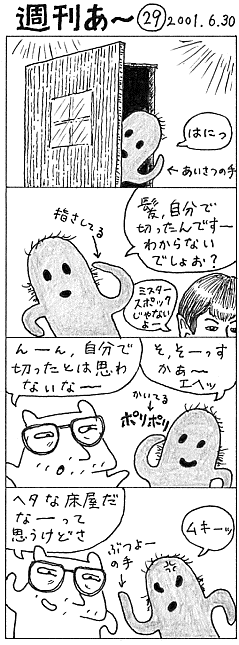 週刊あ～ 29 2001.6.30
はにっ
←あいさつの手
髪,自分で
切ったんですー
わからない
でしょお?
指さしてる
ミスター
スポック
じゃない
よー
そ,そーっす
かぁ～
エヘッ
んーん,自分で
切ったとは思わ
ないなー
かいてる
ポリポリ
ヘタな床屋だ
なーって
思うけどさ
ムキーッ
ぶつよー
の手